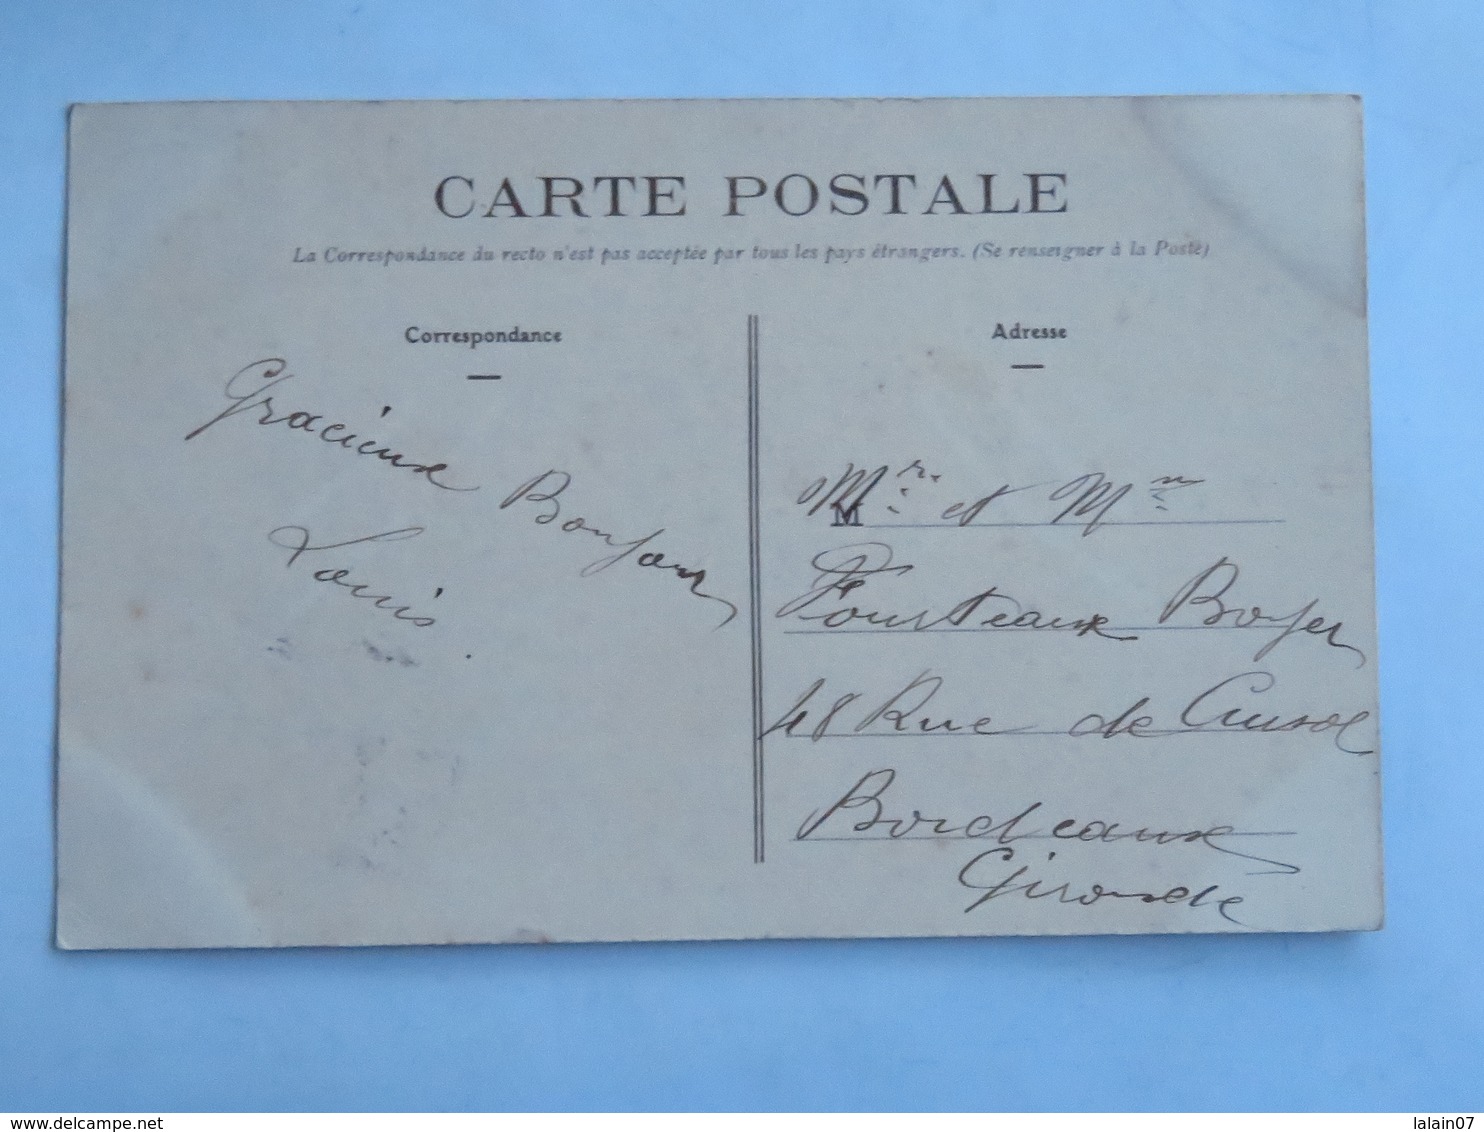 CARTE POSTALE
La Correspondance du recto n'est pas acceptée par tous les pays étrangers. (Se renseigner à la Poste)
Correspondance
Gracieux Bonjour
Louis
Adresse
M
Mr. et Mme
Fourteaux Boyer
48 Rue de Cursol
Bordeaux
Gironde
© delcampe.net
lalain07